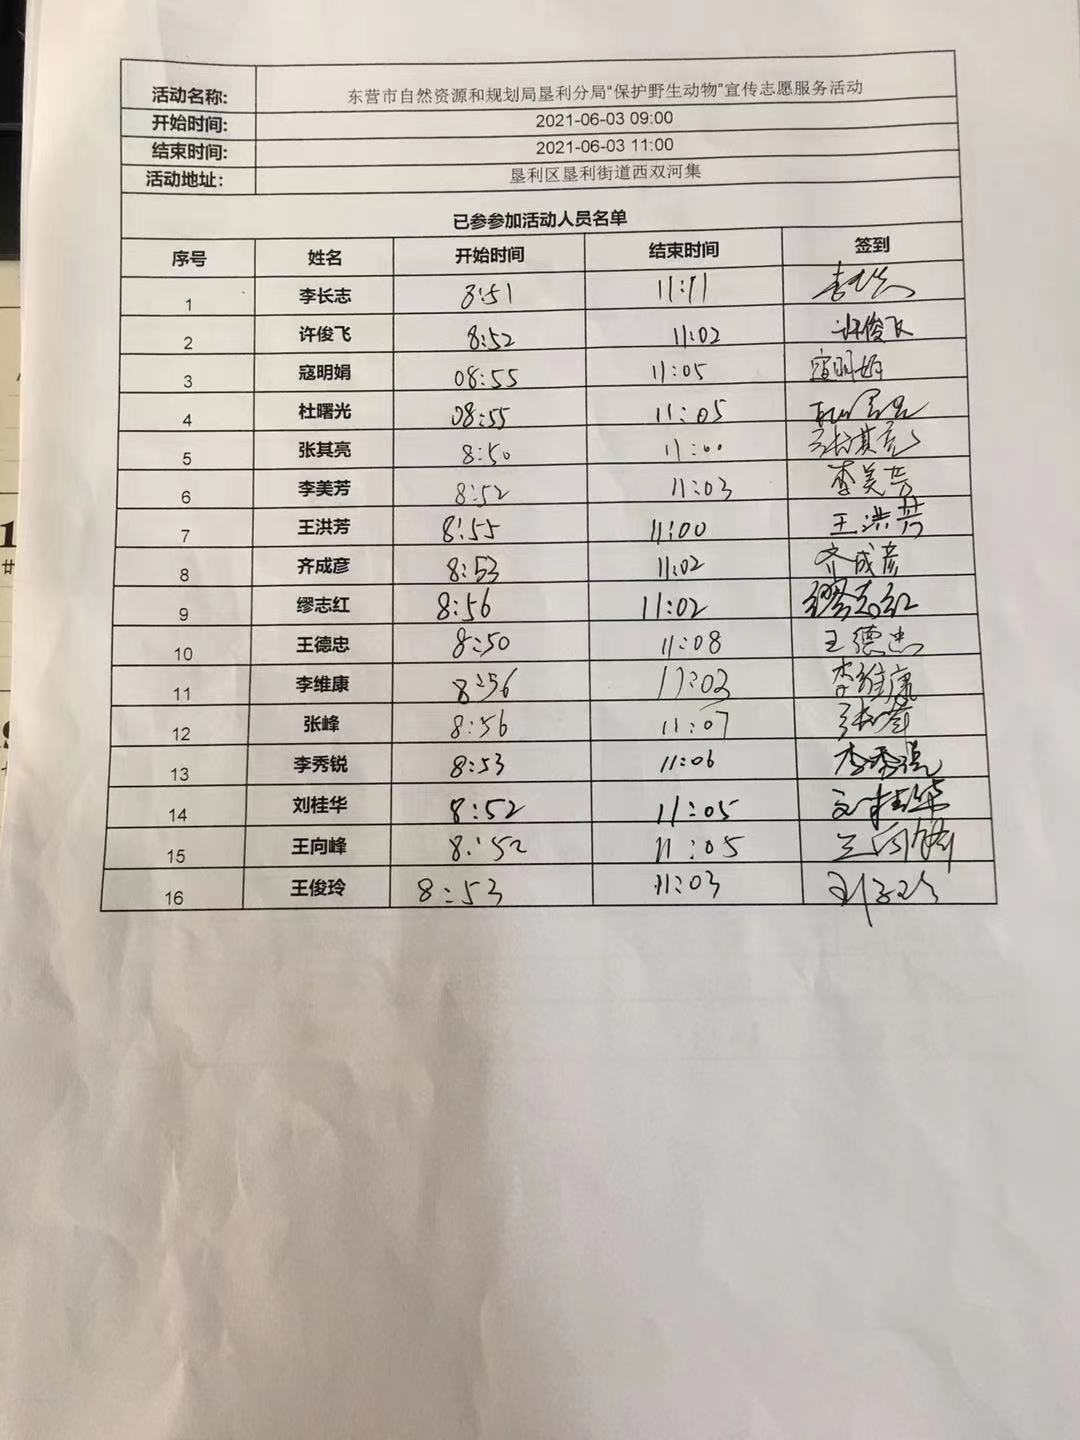 活动名称: 东营市自然资源和规划局垦利分局“保护野生动物”宣传志愿服务活动
开始时间: 2021-06-03 09:00
结束时间: 2021-06-03 11:00
活动地址: 垦利区垦利街道西双河集
已参参加活动人员名单
序号 姓名 开始时间 结束时间 签到
1 李长志 8:51 11:11
2 许俊飞 8:52 11:02 许俊飞
3 寇明娟 08:55 11:05 寇明娟
4 杜曙光 08:55 11:05
5 张其亮 8:50 11:00 张其亮
6 李美芳 8:52 11:03 李美芳
7 王洪芳 8:55 11:00 王洪芳
8 齐成彦 8:53 11:02 齐成彦
9 缪志红 8:56 11:02 缪志红
10 王德忠 8:50 11:08 王德忠
11 李维康 8:56 11:02 李维康
12 张峰 8:56 11:07 张峰
13 李秀锐 8:53 11:06 李秀锐
14 刘桂华 8:52 11:05 刘桂华
15 王向峰 8:52 11:05
16 王俊玲 8:53 11:03